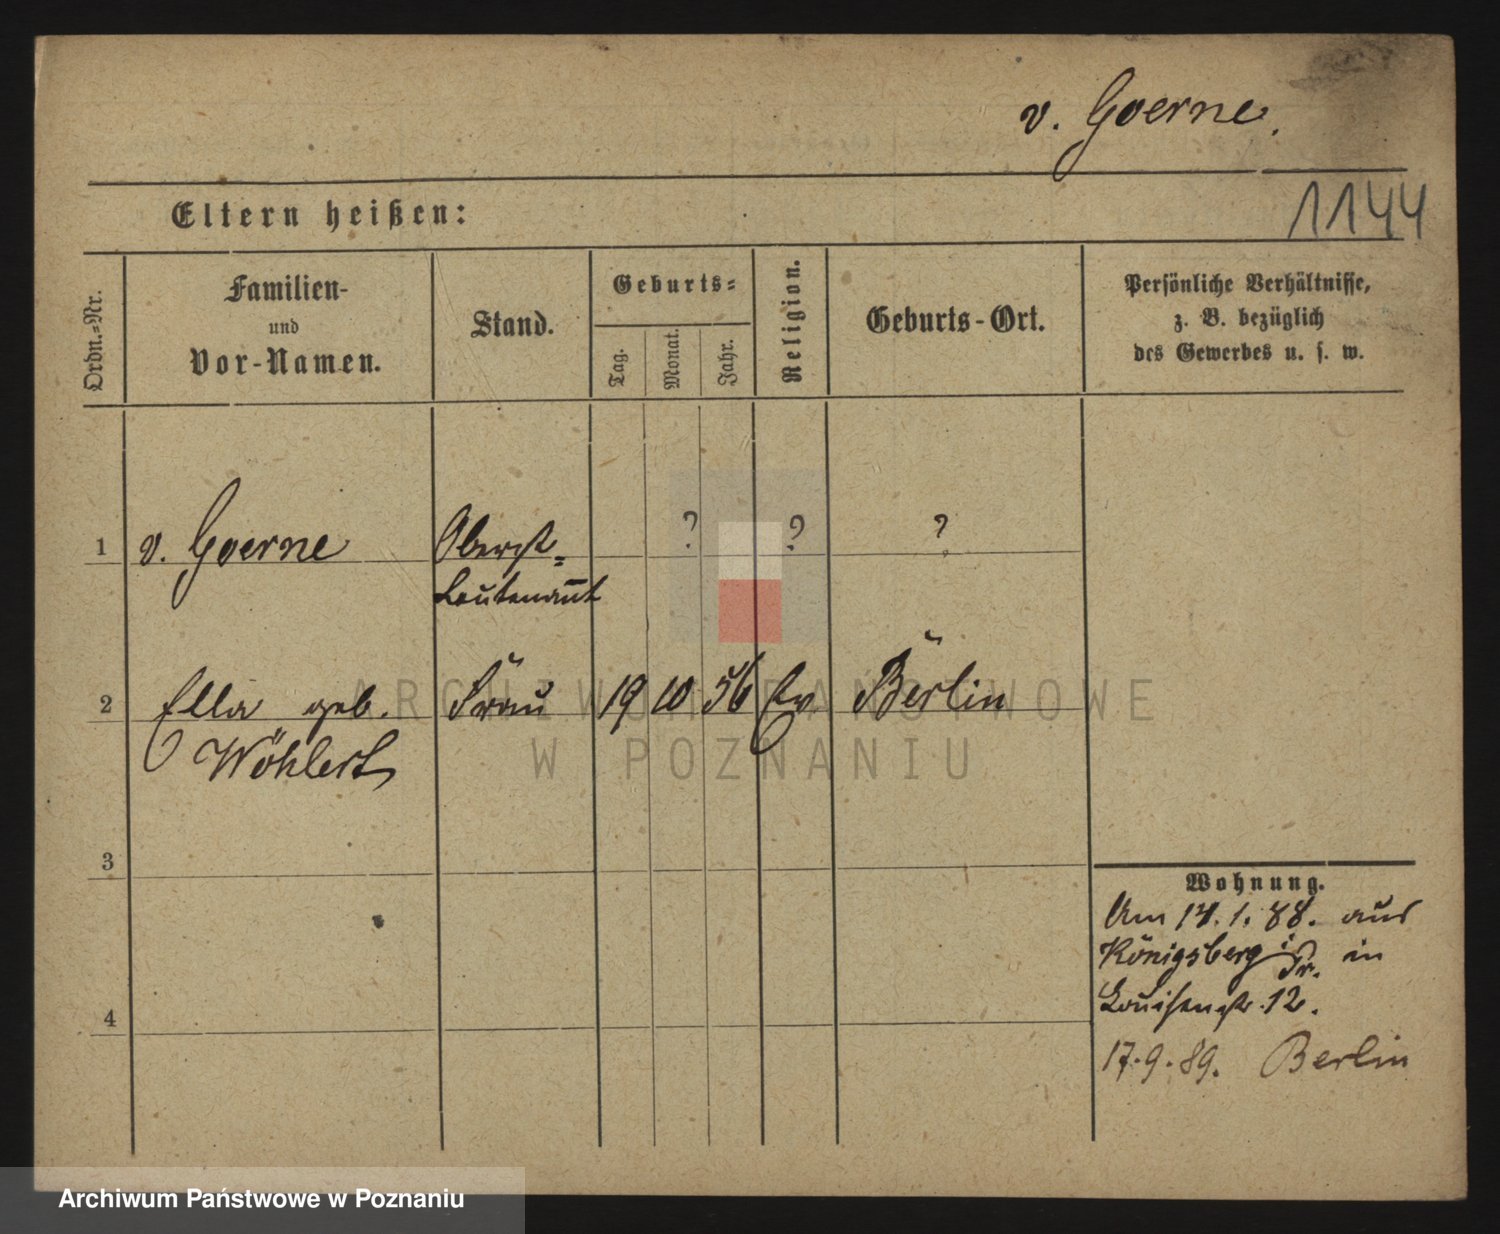 v. Goerne.
Eltern heißen:
1144
Ordn.-Nr.
Familien-
und
Vor-Namen.
Stand.
Geburts-
Tag.
Monat.
Jahr.
Religion.
Geburts-Ort.
Persönliche Verhältnisse,
z. B. bezüglich
des Gewerbes u. s. w.
1 v. Goerne Oberst- ? ? ?
Leutenant
2 Ella geb. Frau 19 10 56 Ev Berlin
Wöhlert
3
4
Wohnung.
Am 14.1.88. aus
Königsberg i Pr. in
Louisenstr. 12.
17.9.89. Berlin
ARCHIWUM PAŃSTWOWE
W POZNANIU
Archiwum Państwowe w Poznaniu